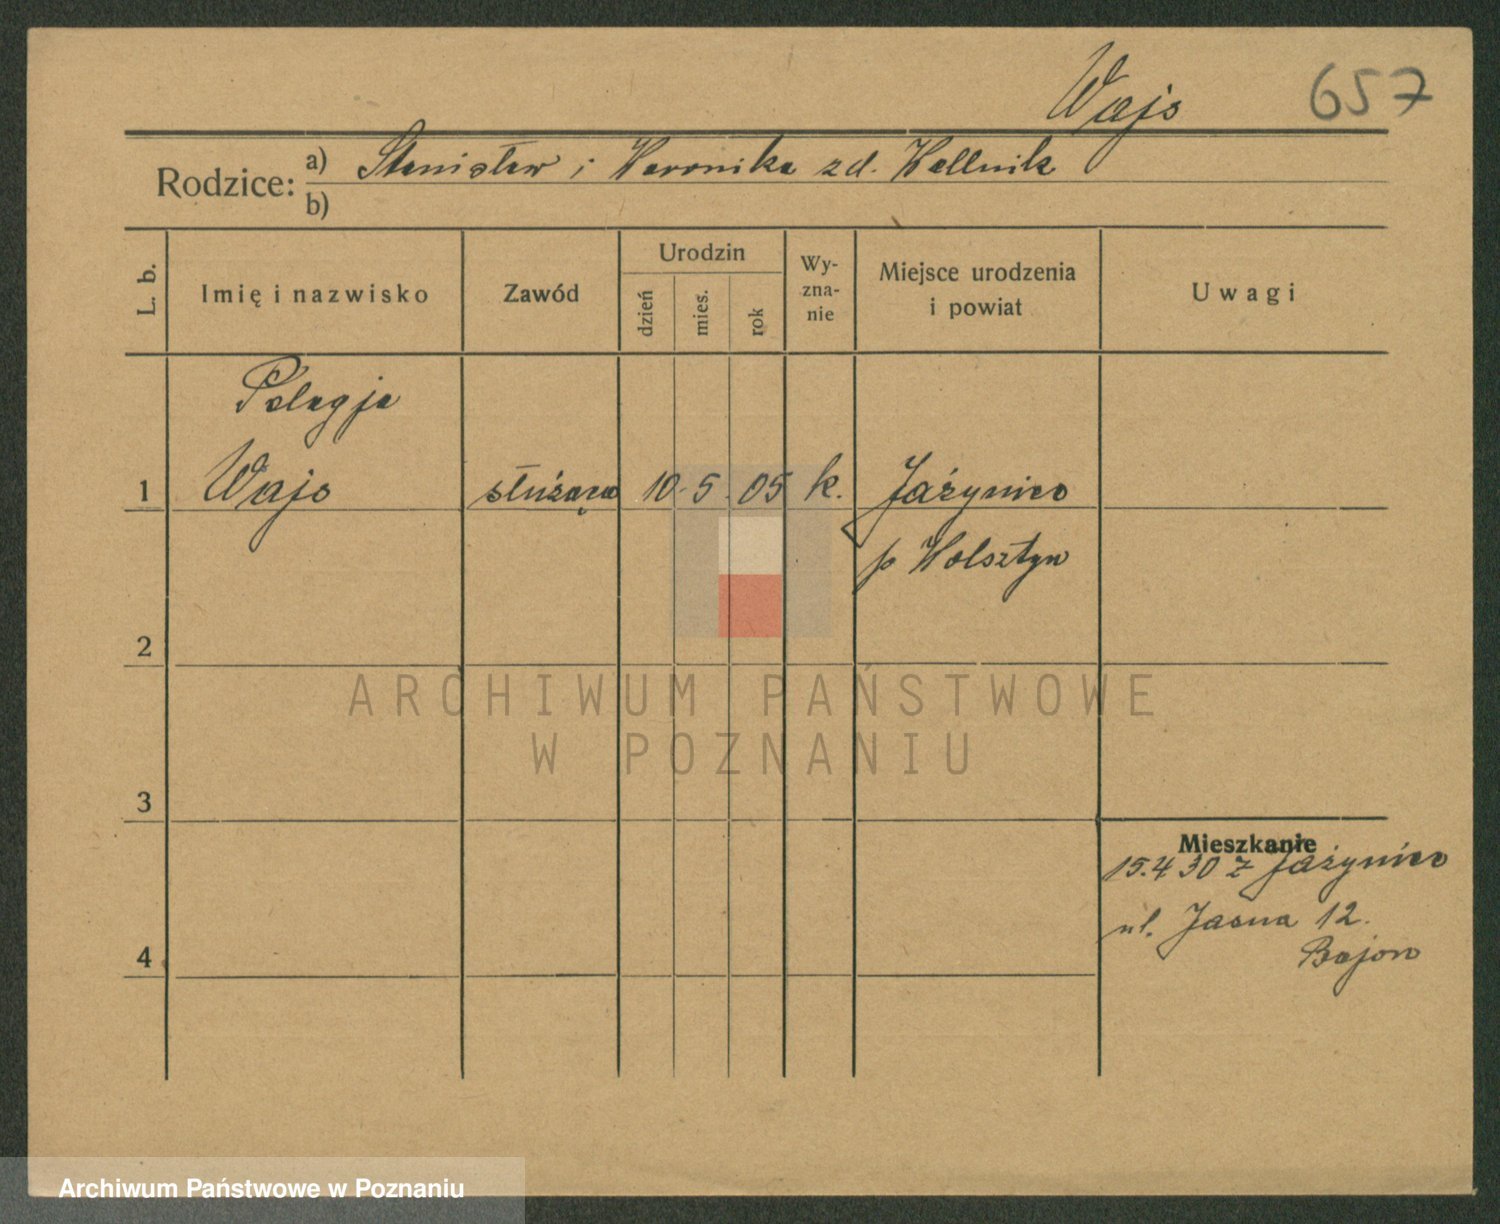 Wajs 657
Rodzice: a) Stanisław i Weronika zd. Wellnik
b)
L. b. Imię i nazwisko Zawód Urodzin dzień mies. rok Wy-zna-nie Miejsce urodzenia i powiat Uwagi
Pelagja
1 Wajs służąca 10. 5. 05 k. Jażyniec
p Wolsztyn
2
ARCHIWUM PAŃSTWOWE
W POZNANIU
3
Mieszkanie
15.4 30 z Jażyniec
ul. Jasna 12.
4
Archiwum Państwowe w Poznaniu